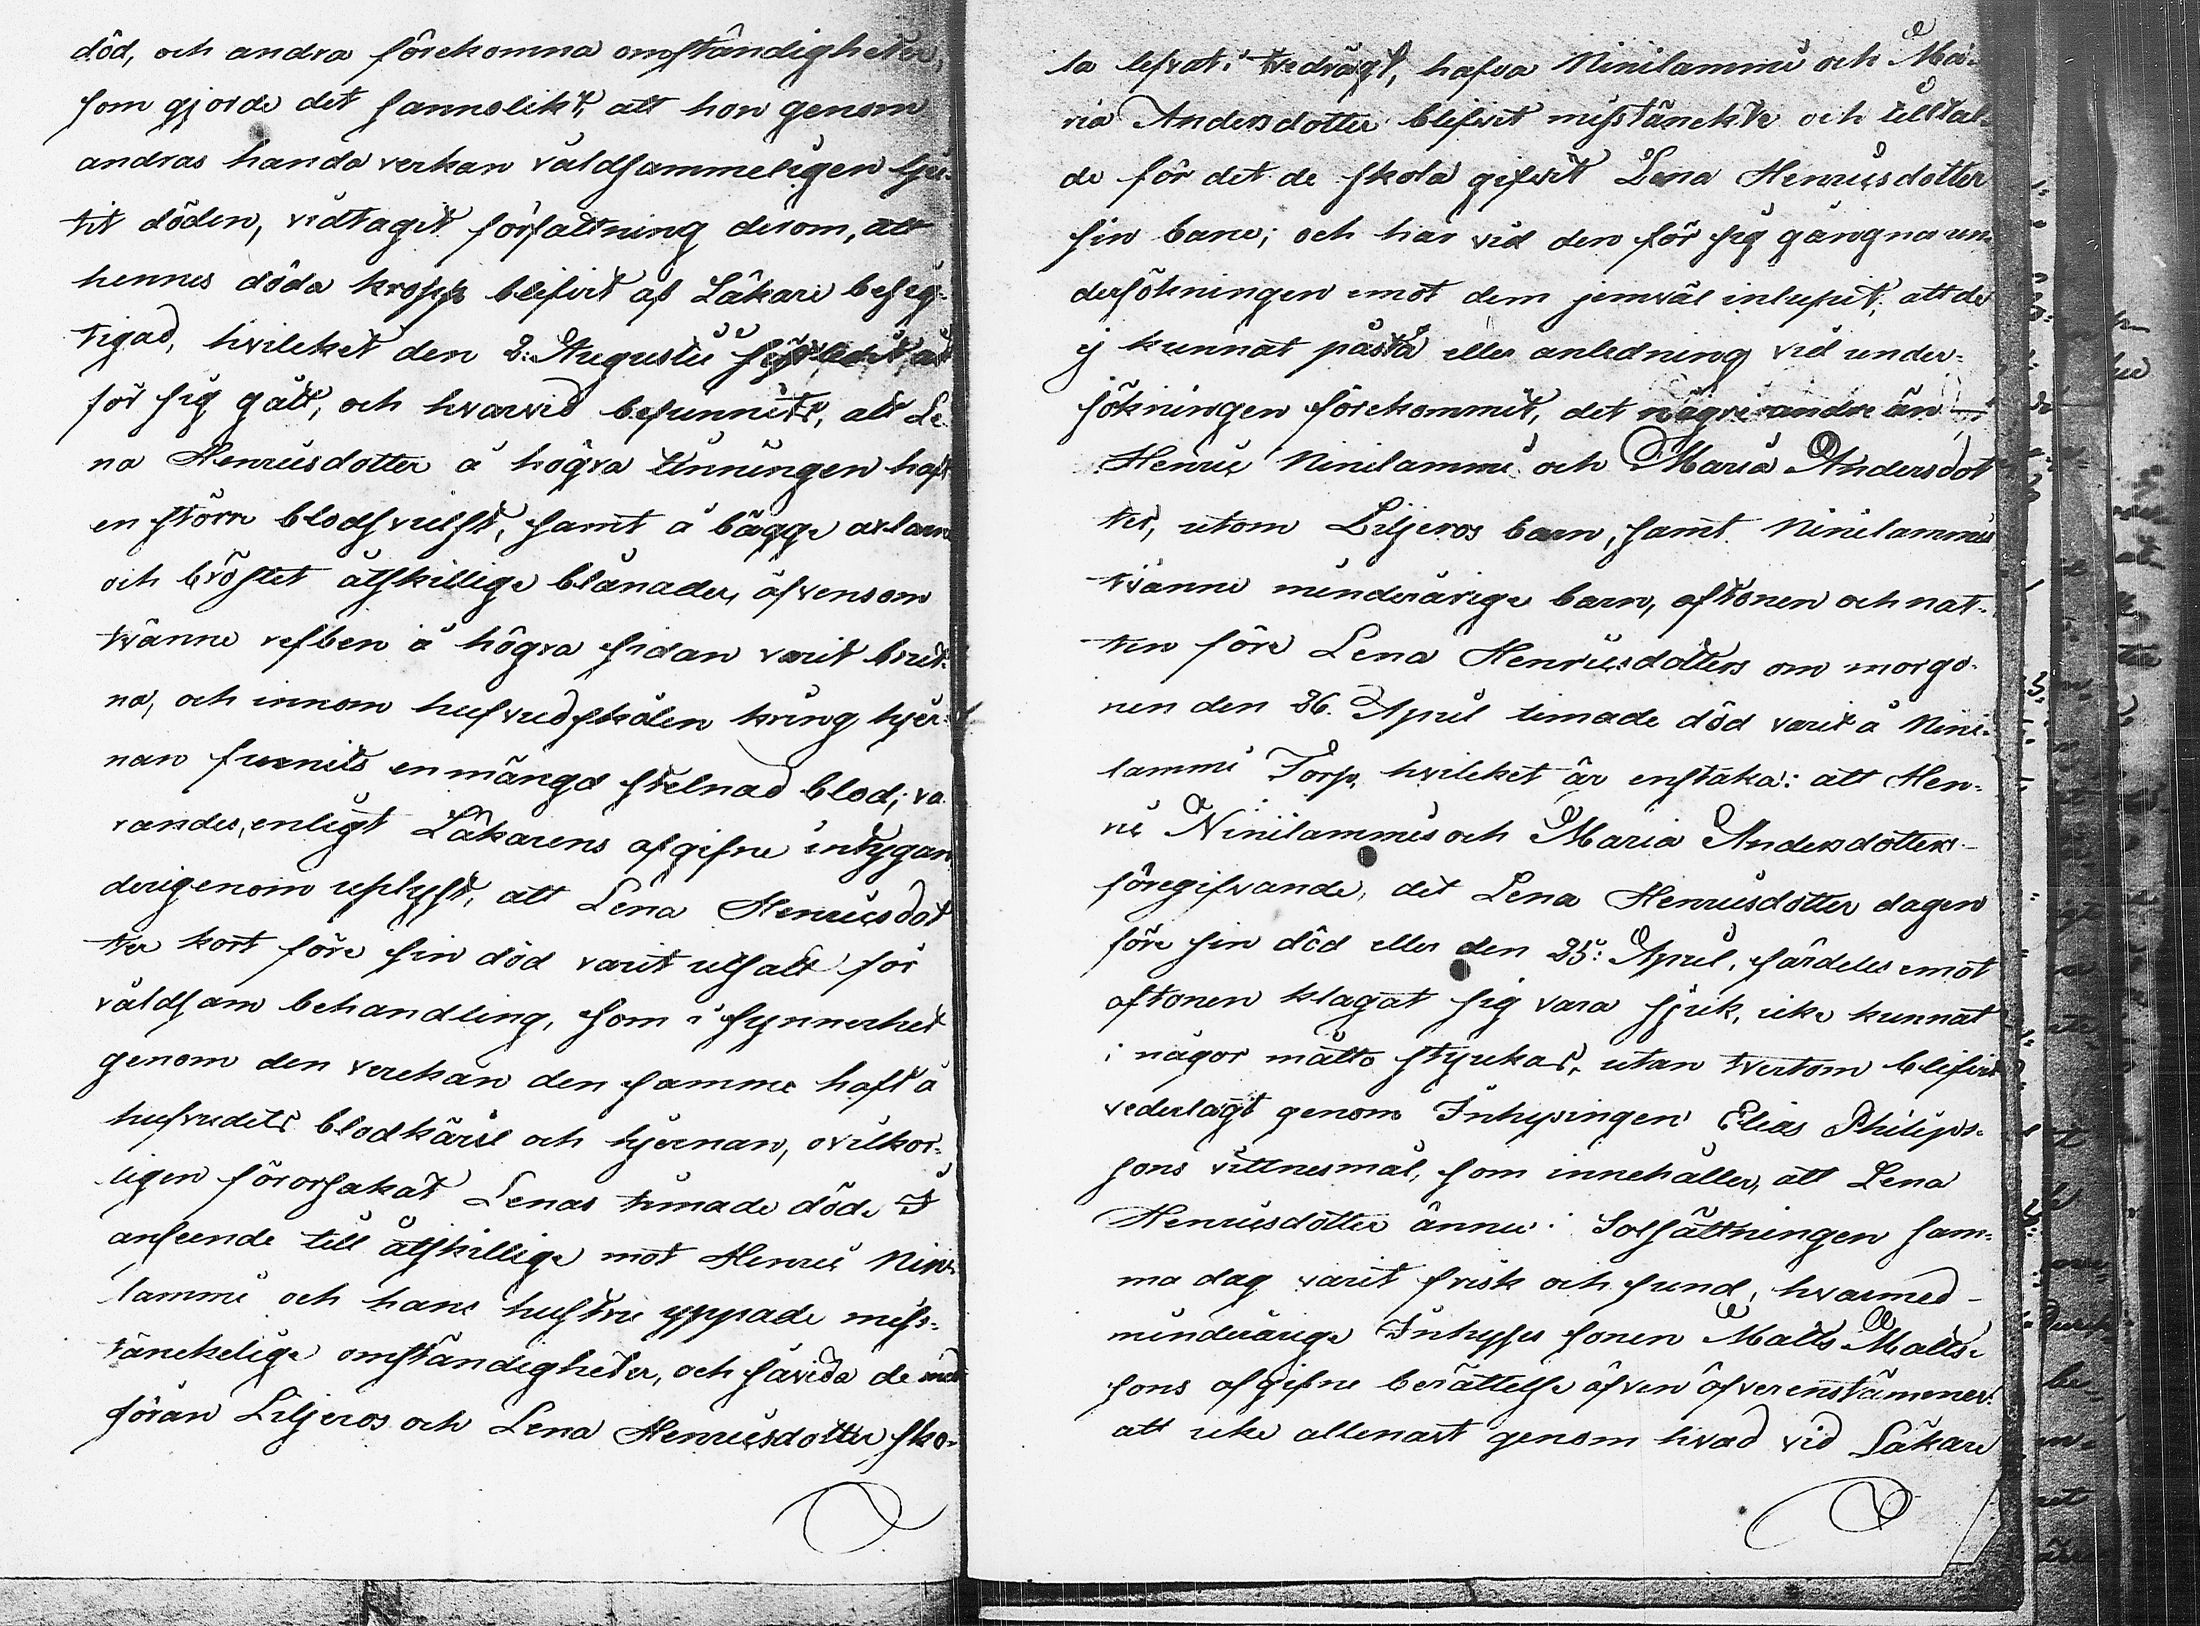 död, och andra förekomna omständigheter,
som gjorde det sannolikt, att hon genom
andras handa verkan våldsammeligen lju-
tit döden, vidtagit författning derom, att
hennes döda kropp blifvit af Läkare besig-
tigad, hvilcket den 2. Augustii
för sig gått, och hvarvid befunnits, att Le-
na Henricsdotter å högra tinningen haft
en större blodsvulst, samt å bägge axlarne
och bröstet åtskillige blånader, äfvensom
tvänne refben å högra sidan varit brut-
na, och innom hufvudskålen kring hjer-
nan funnits en mängd stelnad blod; va-
randes, enligt Läkarens afgifne intygan
derigenom uplyst, att Lena Henricsdot
ter kort före sin död varit utsatt för
våldsam behandling, som i synnerhet
genom den verckan den samma haft å
hufvudets blodkäril och hjernan, ovilkor-
ligen förorsakat Lenas timade död. I
anseende till åtskillige mot Henric Nini-
lammi och hans hustru yppade miss-
tänckelige omständigheter, och såvida de med
förän Liljeros och Lena Henricsdotter sko-
la lefvat i tvedrägt, hafva Ninilammi och Ma-
ria Andersdotter blifvit misstänckte och tilltal-
de för det de skola gifvit Lena Henricsdotter
sin bane; och har vid den för sig gångna un-
dersökningen emot dem jemväl inlupit, att de
ej kunnat påstå eller anledning vid under-
sökningen förekommit, det någre andre än
Henric Ninilammi och Maria Andersdot
ter, utom Liljeros barn, samt Ninilammis
tvänne minderårige barn, aftonen och nat-
ten före Lena Henricsdotters om morgo-
nen den 26. April timade död varit å Nini-
lammi Torp, hvilcket är enstaka: att Hen-
ric Ninilammis och Maria Andersdotters
föregifvande, det Lena Henricsdotter dagen
före sin död eller den 25: April, särdeles emot
aftonen klagat sig vara sjuk, icke kunnat
i någor måtto styrckas, utan tvertom blifvit
vederlagt genom Inhysingen Elias Philips-
sons vittnesmål, som innehåller, att Lena
Henricsdotter ännu i Solsättningen sam-
ma dag varit frisk och sund, hvarmed
minderårige Inhyses sonen Matts Matts-
sons afgifne berättelse äfven öfverenstämmer:
att icke allenast genom hvad vid Läkare